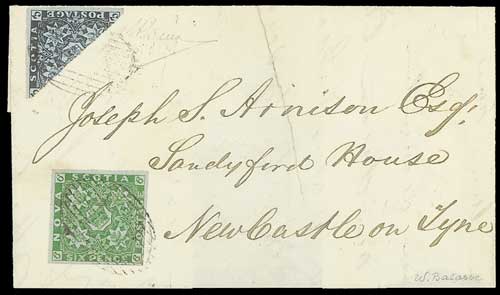 SCOTIA
POSTAGE
Joseph S. Arnison Esqr
Sandyford House
NewCastle on Tyne
SCOTIA
NOVA
POSTAGE
SIX PENCE